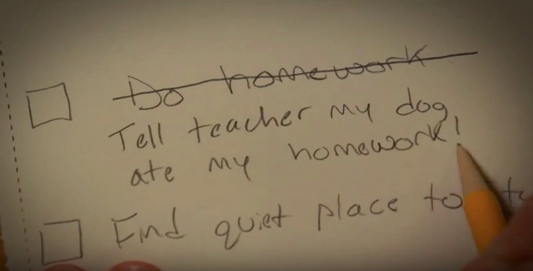 Do homework
Tell teacher my dog
ate my homework!
Find quiet place to